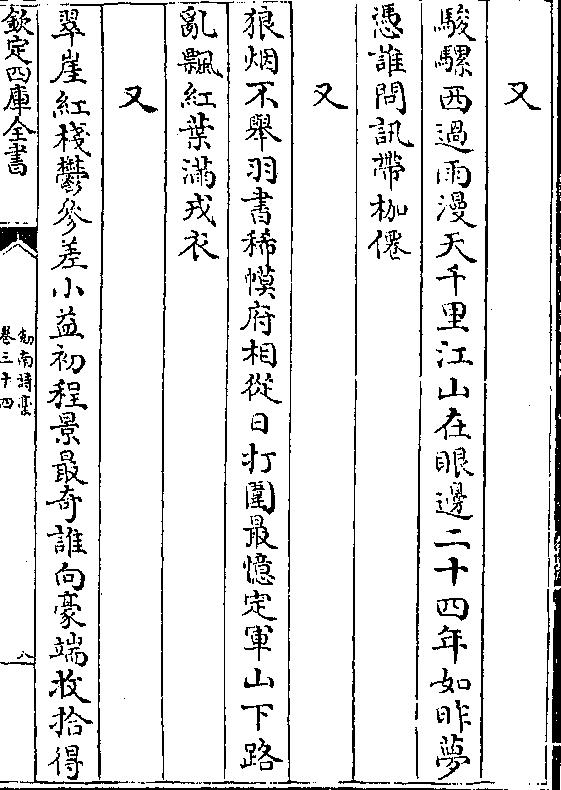 又
駿騾西過雨漫天千里江山在眼邊二十四年如昨夢
憑誰問訊帶枷僊
又
狼烟不舉羽書稀幙府相從日打圍最憶定軍山下路
亂飄紅葉滿戎衣
又
翠崖紅棧鬱參差小益初程景最奇誰向豪端收拾得
欽定四庫全書
劒南詩藁
卷三十四
八